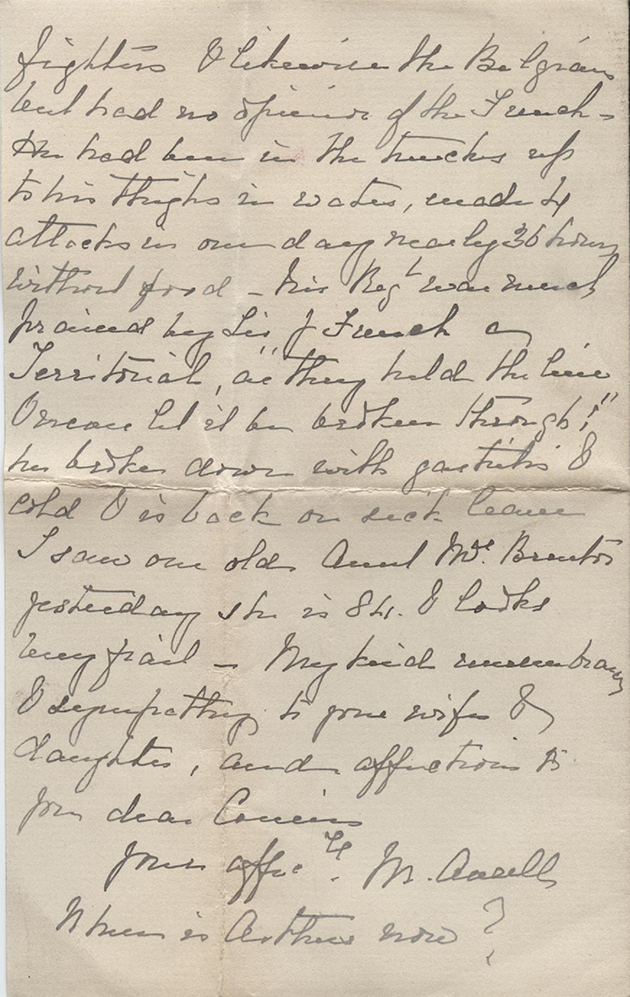 fighters & likewise the Belgians
but had no opinion of the French –
He had been in the trenches up
to his thighs in water, made 4
attacks in one day nearly 36 hours
without food – his Regt was much
praised by Sir J French as
Territorial, "as they held the line
& never let it be broken through!"
he broke down with gastritis &
cold & is back on sick leave
I saw our old Aunt Mrs. Brenton
yesterday she is 84. & looks
very frail – My kind remembrances
& sympathy to your wife &
daughter, and affection to
you dear Cousin
Your affectly. M.
Where is Arthur now?